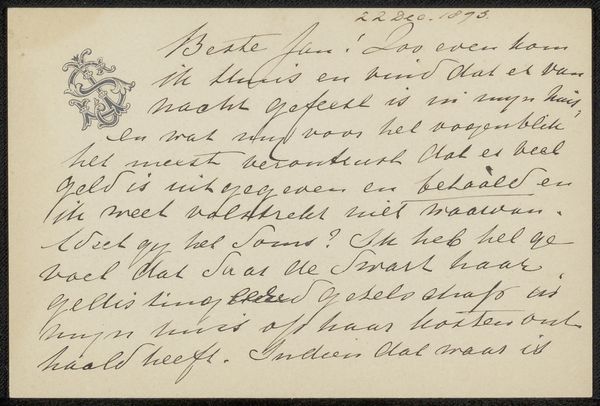 22 Dec. 1893.
Beste Jan! Zoo even kom
ik thuis en vind dat er van
nacht gefeest is in mijn huis,
en wat mij voor het oogenblik
het meest verontrust dat er veel
geld is uitgegeven en betaald en
ik weet volstrekt niet waarvan.
gij het soms? Ik heb het ge
voel dat Saar de Swart haar
gedistingeerd gezelschap in
mijn huis op haar kosten ont
haald heeft. Indien dat waar is